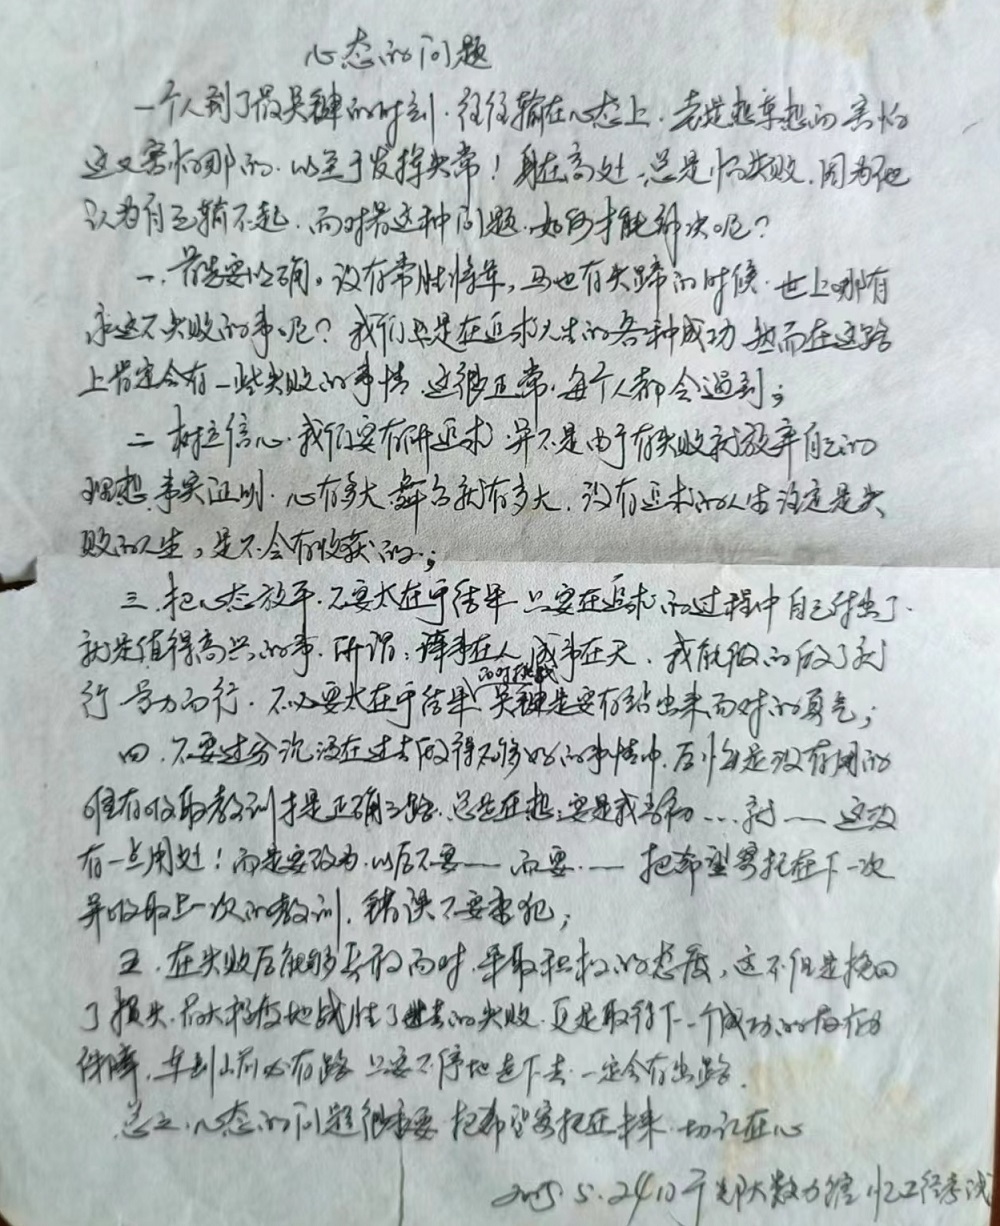 心态的问题
一个人到了最关键的时刻，往往输在心态上，老是想东想西，害怕
这又害怕那的，以至于发挥失常！身在高处，总是怕失败，因为他
认为自己输不起，而对着这种问题，如何才能解决呢？
一、首先要明确。没有常胜将军，马也有失蹄的时候，世上哪有
永远不失败的事呢？我们总是在追求人生的各种成功，然而在这路
上肯定会有一些失败的事情，这很正常，每个人都会遇到；
二、树立信心，我们要有所追求，并不是由于有失败就放弃自己的
理想，事实证明，心有多大，舞台就有多大，没有追求的人生注定是失
败的人生，是不会有收获的；
三、把心态放平，不要太在乎结果，只要在追求的过程中自己付出了，
就是值得高兴的事，所谓：谋事在人，成事在天，我能做的做了就
行，量力而行，不必要太在乎结果，关键是要有站出来面对的勇气；
四、不要过分沉浸在过去做得不够好的事情中，后悔是没有用的
唯有吸取教训才是正确之路，总是在想：要是我当初……就……这没
有一点用处！而是要改为，以后不要……而要……把希望寄托在下一次
并吸取上一次的教训，错误不要重犯；
五、在失败后能够去敢面对，采取积极的态度，这不但是挽回
了损失，最大程度地战胜了过去的失败，更是取得下一个成功的有力
保障，车到山前必有路，只要不停地走下去，一定会有出路。
总之，心态的问题很重要，把希望寄托在未来，切记在心
5.24